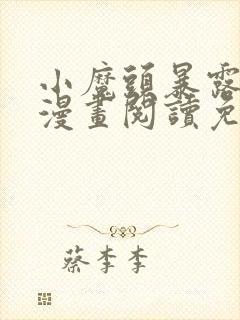 小魔頭暴露
漫畫閱讀免
蔡李李